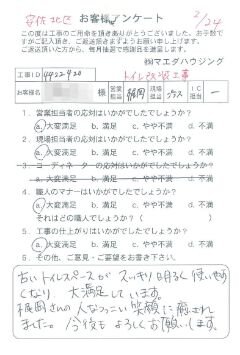 安佐北区 お客様アンケート 2/24
この度は工事のご用命を頂きありがとうございました。お手数で
すがご記入頂き、ご返送頂きますようお願い申し上げます。
ご返送頂いた方から、毎月抽選で感謝状を進呈します。
㈱マエダハウジング
工事ID トイレ改装工事
お客様名 様 営業担当 工事担当 IC担当 ー
1. 営業担当者の応対はいかがでしたでしょうか?
a. 大変満足 b. 満足 c. やや不満 d. 不満
2. 現場担当者の応対はいかがでしたでしょうか?
a. 大変満足 b. 満足 c. やや不満 d. 不満
3. コーディネーターの応対はいかがでしたでしょうか?
a. 大変満足 b. 満足 c. やや不満 d. 不満
4. 職人のマナーはいかがでしたでしょうか?
a. 大変満足 b. 満足 c. やや不満 d. 不満
それはどの職人でしょうか?( )
5. 工事の仕上がりはいかがでしたでしょうか?
a. 大変満足 b. 満足 c. やや不満 d. 不満
6. その他、ご意見・ご要望をお書き下さい。
古いトイレスペースが スッキリ明るく使いやす
くなり 大満足しています。
梶岡さんの人なつっこい笑顔に癒され
ました。今後も よろしくお願いします。